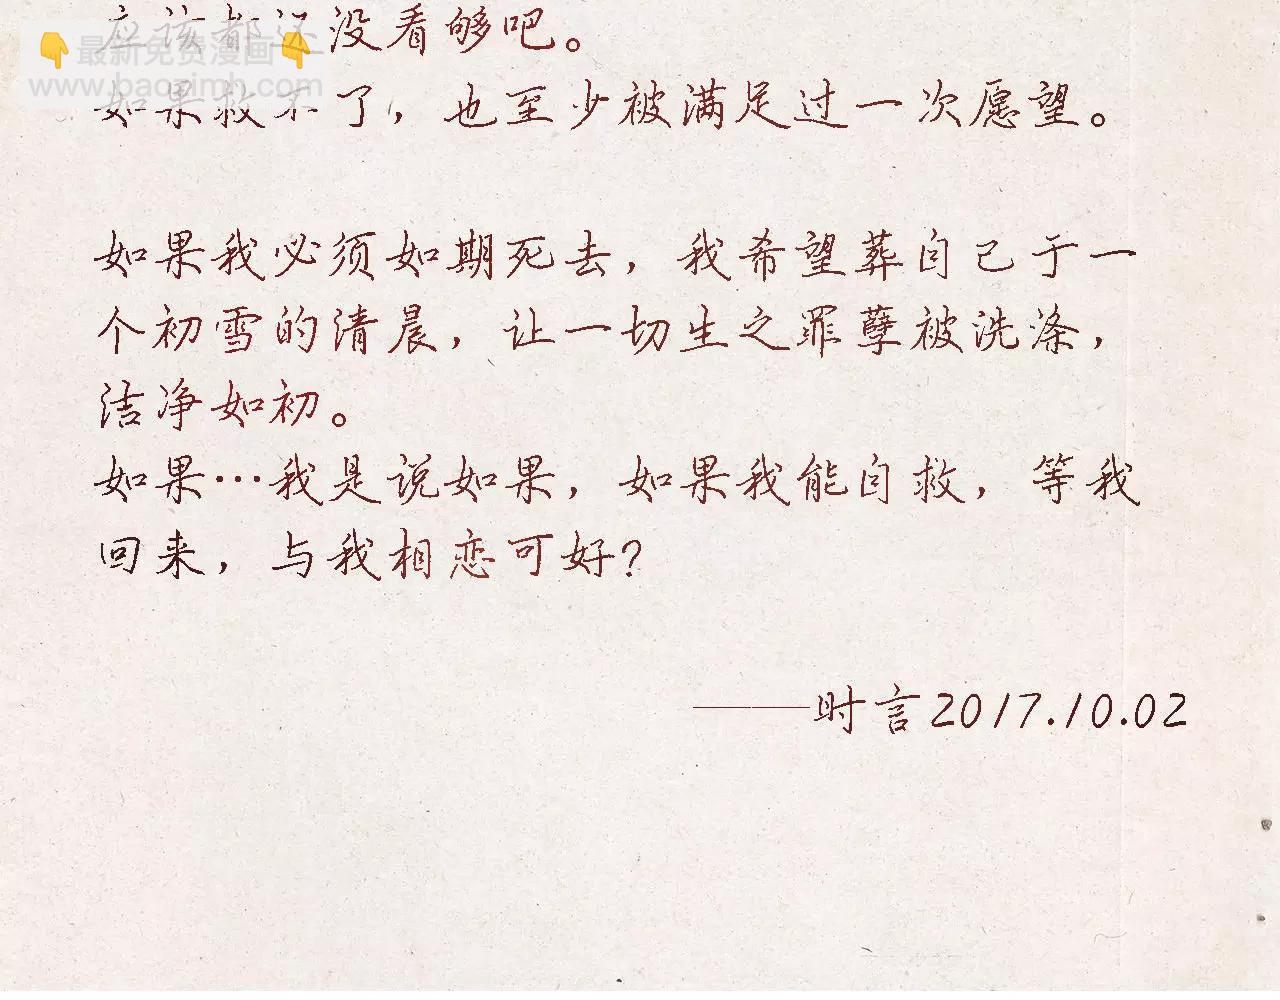 应该都还没看够吧。
👇最新免费漫画👇
www.baozimh.com
如果救不了，也至少被满足过一次愿望。
如果我必须如期死去，我希望葬自己于一
个初雪的清晨，让一切生之罪孽被洗涤，
洁净如初。
如果…我是说如果，如果我能自救，等我
回来，与我相恋可好？
———时言2017.10.02